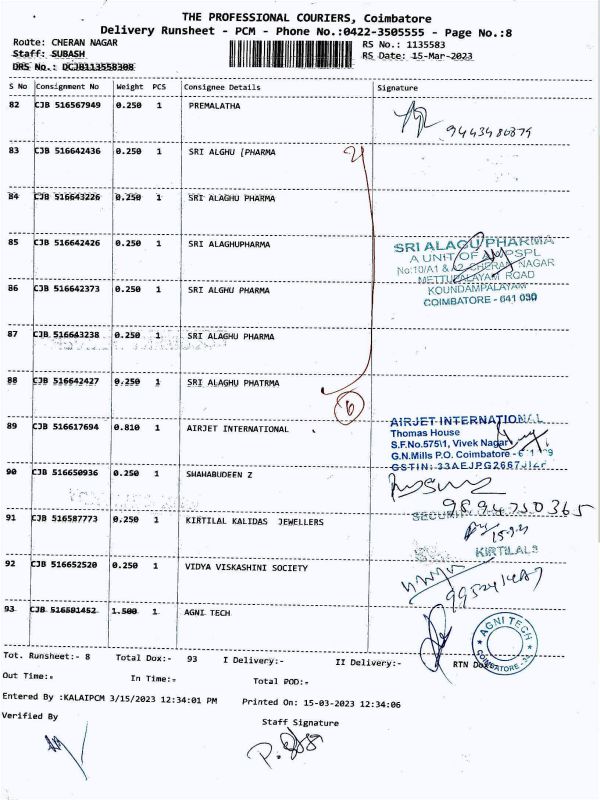 THE PROFESSIONAL COURIERS, Coimbatore
Delivery Runsheet - PCM - Phone No.:0422-3505555 - Page No.:8
Route: CHERAN NAGAR RS No.: 1135583
Staff: SUBASH RS Date: 15-Mar-2023
DRS No.: DCJB113558308
S No Consignment No Weight PCS Consignee Details Signature
82 CJB 516567949 0.250 1 PREMALATHA
9443480879
83 CJB 516642436 0.250 1 SRI ALGHU [PHARMA
84 CJB 516643226 0.250 1 SRI ALAGHU PHARMA
85 CJB 516642426 0.250 1 SRI ALAGHUPHARMA
SRI ALAGU PHARMA
A UNIT OF PSPL
No:10/A1 & A2, CHERAN NAGAR
METTUPALAYAM ROAD
KOUNDAMPALAYAM
COIMBATORE - 641 030
86 CJB 516642373 0.250 1 SRI ALGHU PHARMA
87 CJB 516643238 0.250 1 SRI ALAGHU PHARMA
88 CJB 516642427 0.250 1 SRI ALAGHU PHATRMA
6
89 CJB 516617694 0.810 1 AIRJET INTERNATIONAL
AIRJET INTERNATIONAL
Thomas House
S.F.No.575\1, Vivek Nagar
G.N.Mills P.O. Coimbatore -
GSTIN: 33AEJPG2667
90 CJB 516650936 0.250 1 SHAHABUDEEN Z
9894750365
91 CJB 516587773 0.250 1 KIRTILAL KALIDAS JEWELLERS
KIRTILALS
92 CJB 516652520 0.250 1 VIDYA VISKASHINI SOCIETY
93 CJB 516591452 1.500 1 AGNI TECH
AGNI TECH
COIMBATORE - 34
Tot. Runsheet:- 8 Total Dox:- 93 I Delivery:- II Delivery:- RTN Dox
Out Time:- In Time:- Total POD:-
Entered By :KALAIPCM 3/15/2023 12:34:01 PM Printed On: 15-03-2023 12:34:06
Verified By Staff Signature